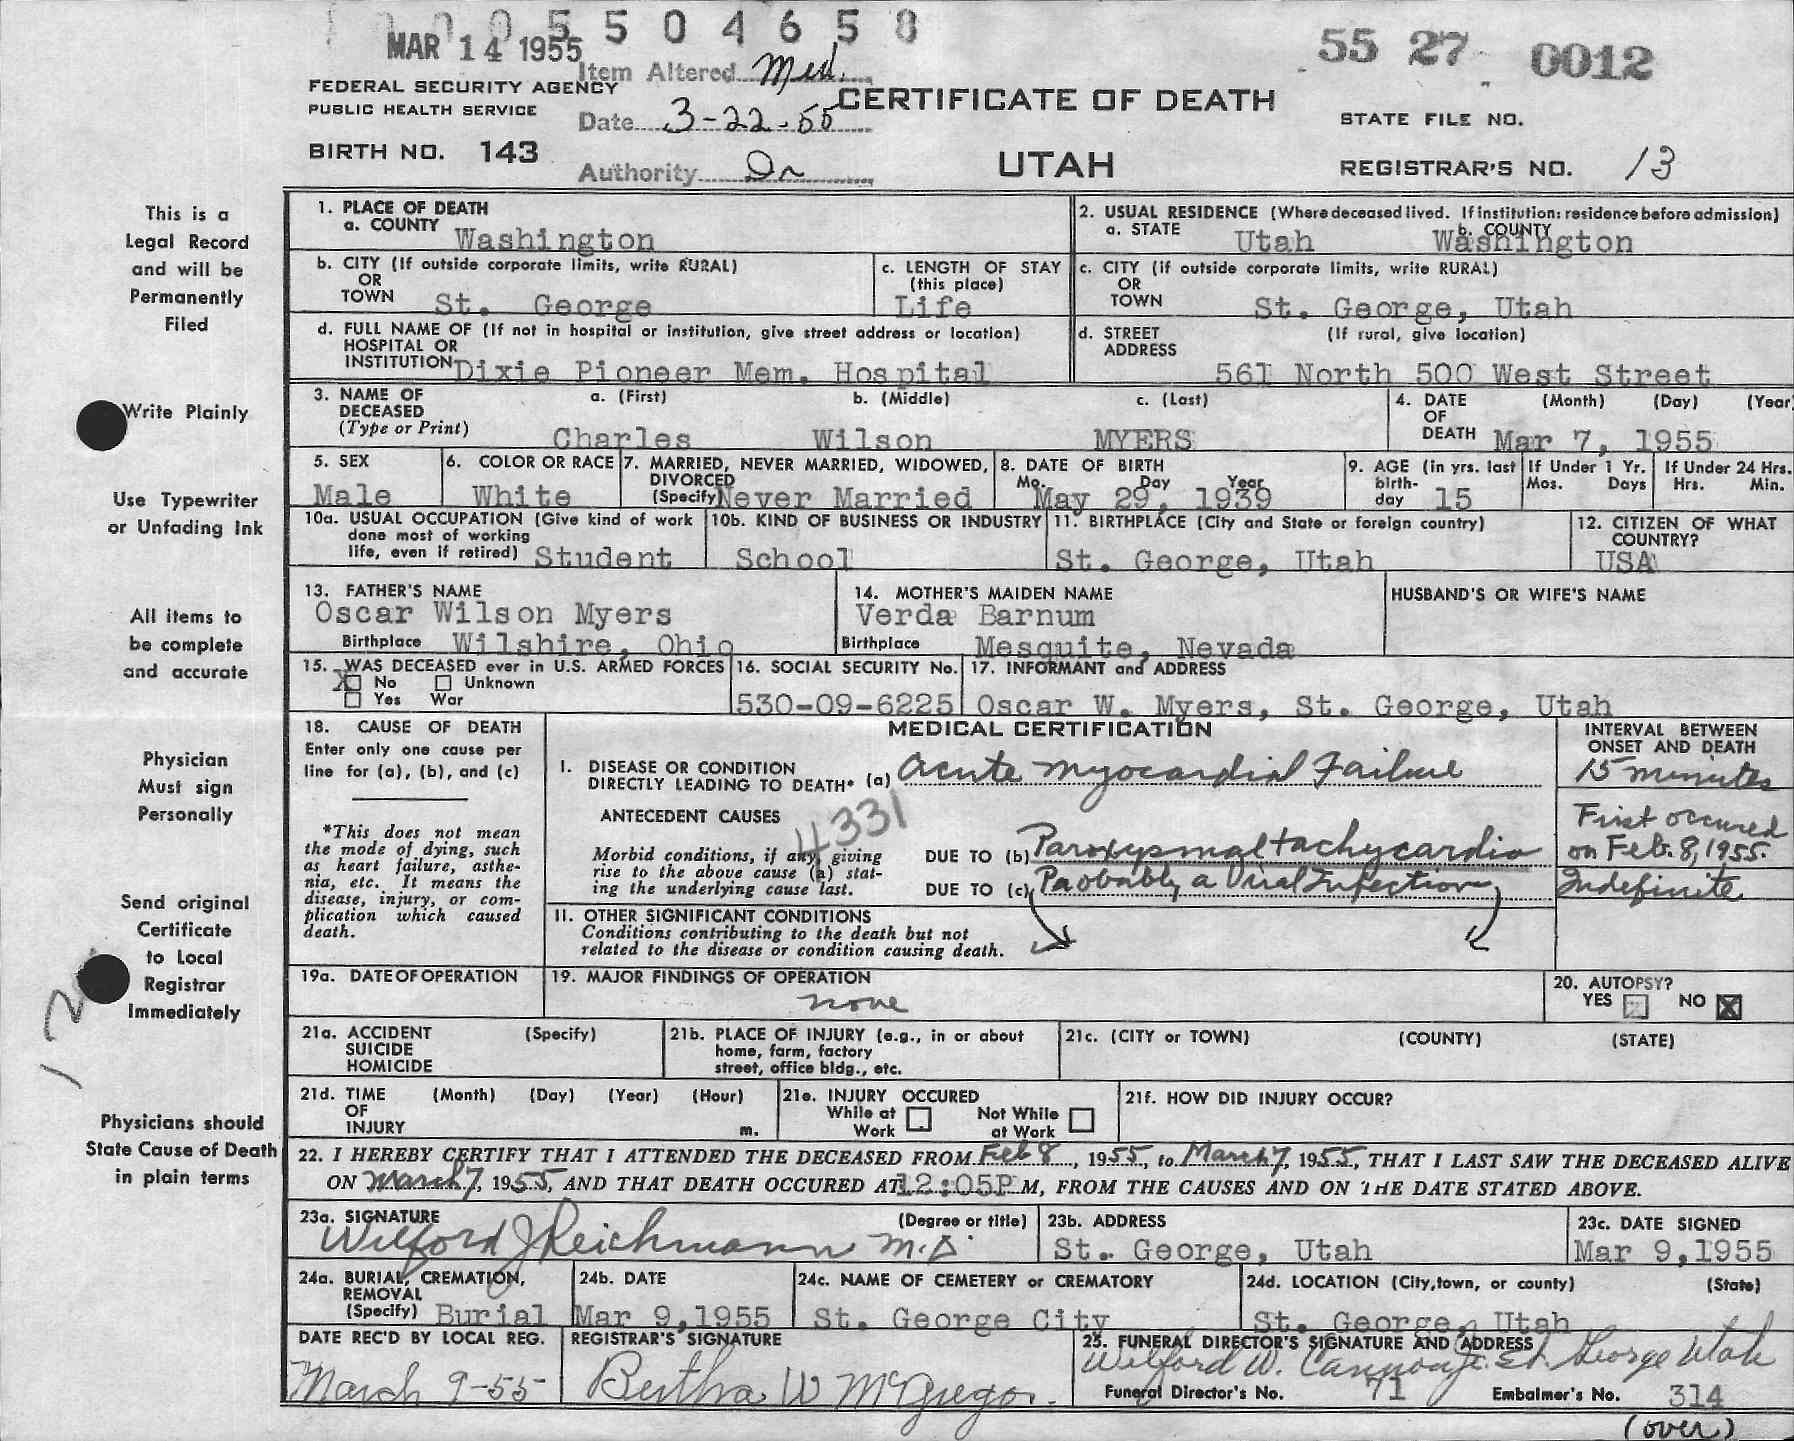 5504658
MAR 14 1955
55 27 0012
Item Altered Med.
FEDERAL SECURITY AGENCY
PUBLIC HEALTH SERVICE
Date 3-22-55
CERTIFICATE OF DEATH
STATE FILE NO.
BIRTH NO. 143
Authority Dr
UTAH
REGISTRAR'S NO. 13
This is a
Legal Record
and will be
Permanently
Filed
Write Plainly
Use Typewriter
or Unfading Ink
All items to
be complete
and accurate
Physician
Must sign
Personally
Send original
Certificate
to Local
Registrar
Immediately
Physicians should
State Cause of Death
in plain terms
1. PLACE OF DEATH
a. COUNTY Washington
2. USUAL RESIDENCE (Where deceased lived. If institution: residence before admission)
a. STATE Utah b. COUNTY Washington
b. CITY (If outside corporate limits, write RURAL)
OR
TOWN St. George
c. LENGTH OF STAY
(this place)
Life
c. CITY (If outside corporate limits, write RURAL)
OR
TOWN St. George, Utah
d. FULL NAME OF (If not in hospital or institution, give street address or location)
HOSPITAL OR
INSTITUTION Dixie Pioneer Mem. Hospital
d. STREET (If rural, give location)
ADDRESS
561 North 500 West Street
3. NAME OF
DECEASED
(Type or Print)
a. (First) b. (Middle) c. (Last)
Charles Wilson MYERS
4. DATE (Month) (Day) (Year
OF
DEATH Mar 7, 1955
5. SEX
Male
6. COLOR OR RACE
White
7. MARRIED, NEVER MARRIED, WIDOWED,
DIVORCED
(Specify) Never Married
8. DATE OF BIRTH
Mo. Day Year
May 29, 1939
9. AGE (in yrs. last
birth-
day 15
If Under 1 Yr.
Mos. Days
If Under 24 Hrs.
Hrs. Min.
10a. USUAL OCCUPATION (Give kind of work
done most of working
life, even if retired) Student
10b. KIND OF BUSINESS OR INDUSTRY
School
11. BIRTHPLACE (City and State or foreign country)
St. George, Utah
12. CITIZEN OF WHAT
COUNTRY?
USA
13. FATHER'S NAME
Oscar Wilson Myers
Birthplace Wilshire, Ohio
14. MOTHER'S MAIDEN NAME
Verda Barnum
Birthplace Mesquite, Nevada
HUSBAND'S OR WIFE'S NAME
15. WAS DECEASED ever in U.S. ARMED FORCES
X No Unknown
Yes War
16. SOCIAL SECURITY No.
530-09-6225
17. INFORMANT and ADDRESS
Oscar W. Myers, St. George, Utah
18. CAUSE OF DEATH
Enter only one cause per
line for (a), (b), and (c)
*This does not mean
the mode of dying, such
as heart failure, asthe-
nia, etc. It means the
disease, injury, or com-
plication which caused
death.
MEDICAL CERTIFICATION
I. DISEASE OR CONDITION
DIRECTLY LEADING TO DEATH* (a) Acute myocardial Failure
ANTECEDENT CAUSES
4331
Morbid conditions, if any, giving
rise to the above cause (a) stat-
ing the underlying cause last.
DUE TO (b) Paroxysmal tachycardia
DUE TO (c) Probably a Viral Infection
II. OTHER SIGNIFICANT CONDITIONS
Conditions contributing to the death but not
related to the disease or condition causing death.
INTERVAL BETWEEN
ONSET AND DEATH
15 minutes
First occured
on Feb. 8, 1955.
Indefinite
19a. DATE OF OPERATION
19. MAJOR FINDINGS OF OPERATION
none
20. AUTOPSY?
YES NO X
21a. ACCIDENT (Specify)
SUICIDE
HOMICIDE
21b. PLACE OF INJURY (e.g., in or about
home, farm, factory
street, office bldg., etc.
21c. (CITY or TOWN) (COUNTY) (STATE)
21d. TIME (Month) (Day) (Year) (Hour)
OF
INJURY m.
21e. INJURY OCCURED
While at Not While
Work at Work
21f. HOW DID INJURY OCCUR?
22. I HEREBY CERTIFY THAT I ATTENDED THE DECEASED FROM Feb 8, 1955, to March 7, 1955, THAT I LAST SAW THE DECEASED ALIVE
ON March 7, 1955, AND THAT DEATH OCCURED AT 12:05P M, FROM THE CAUSES AND ON THE DATE STATED ABOVE.
23a. SIGNATURE (Degree or title)
Wilford J Reichmann M.D.
23b. ADDRESS
St. George, Utah
23c. DATE SIGNED
Mar 9, 1955
24a. BURIAL, CREMATION,
REMOVAL
(Specify) Burial
24b. DATE
Mar 9, 1955
24c. NAME OF CEMETERY or CREMATORY
St. George City
24d. LOCATION (City, town, or county) (State)
St. George, Utah
DATE REC'D BY LOCAL REG.
March 9-55
REGISTRAR'S SIGNATURE
Bertha W McGregor.
25. FUNERAL DIRECTOR'S SIGNATURE AND ADDRESS
Wilford W. Cannon St. George Utah
Funeral Director's No. 71 Embalmer's No. 314
(over)